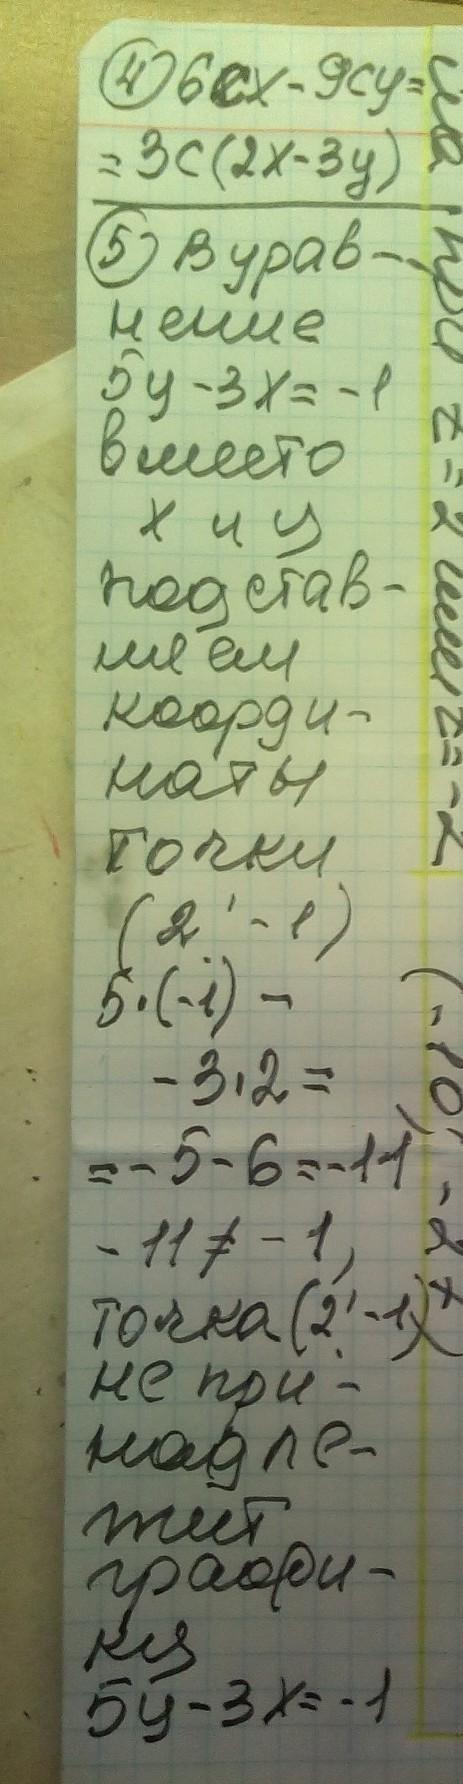 ④ 6cx - 9cy =
= 3c(2x - 3y)
⑤ В урав-
нение
5y - 3x = -1
вместо
x и y
подстав-
ляем
коорди-
наты
точки
(2; -1)
5·(-1) -
-3·2 =
= -5 - 6 = -11
-11 ≠ -1,
точка (2; -1)
не при-
надле-
жит
графи-
ку
5y - 3x = -1
при z = 2 или z = -2